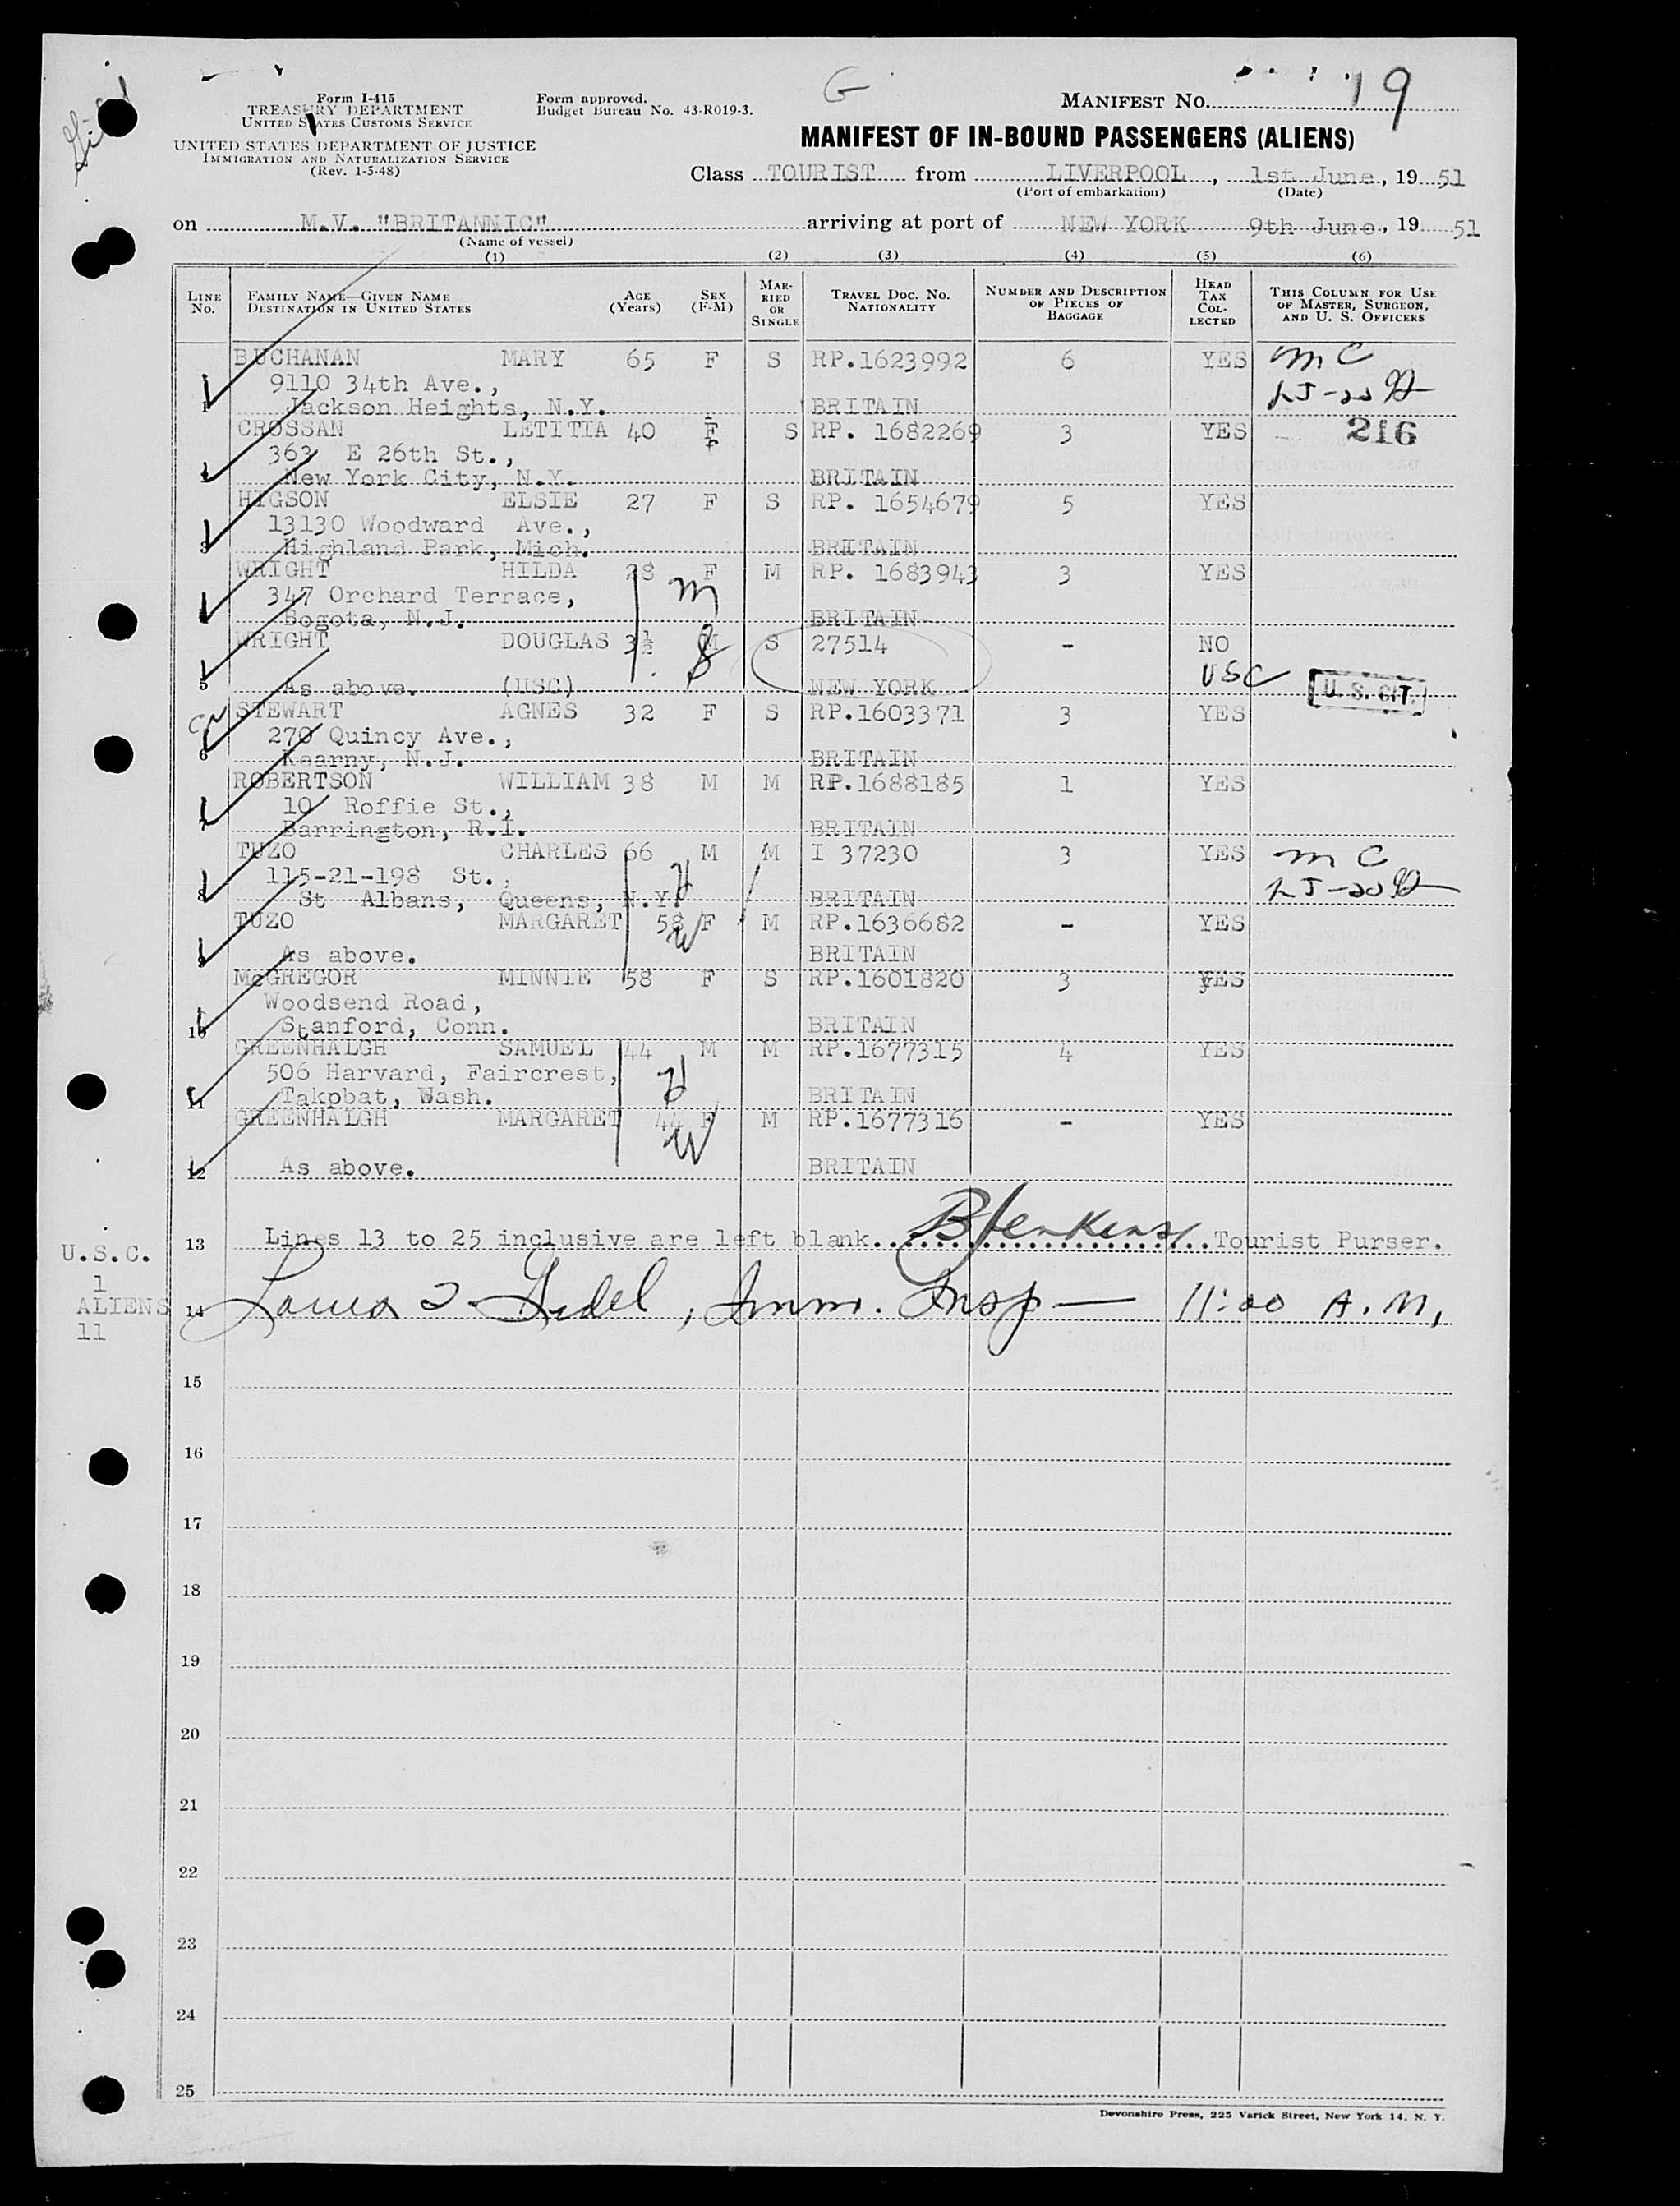 Form I-415
TREASURY DEPARTMENT
UNITED STATES CUSTOMS SERVICE
UNITED STATES DEPARTMENT OF JUSTICE
IMMIGRATION AND NATURALIZATION SERVICE
(Rev. 1-5-48)
Form approved.
Budget Bureau No. 43-R019-3.
G
MANIFEST NO. 19
MANIFEST OF IN-BOUND PASSENGERS (ALIENS)
Class TOURIST from LIVERPOOL, 1st June, 19 51
(Port of embarkation) (Date)
on M.V. "BRITANNIC" arriving at port of NEW YORK 9th June, 19 51
(Name of vessel)
(1) (2) (3) (4) (5) (6)
LINE NO. FAMILY NAME—GIVEN NAME DESTINATION IN UNITED STATES AGE (Years) SEX (F-M) MARRIED OR SINGLE TRAVEL DOC. NO. NATIONALITY NUMBER AND DESCRIPTION OF PIECES OF BAGGAGE HEAD TAX COLLECTED THIS COLUMN FOR USE OF MASTER, SURGEON, AND U. S. OFFICERS
BUCHANAN MARY 65 F S RP.1623992 6 YES MC
9110 34th Ave.,
1 Jackson Heights, N.Y. BRITAIN
CROSSAN LETITIA 40 F S RP. 1682269 3 YES 216
363 E 26th St.,
New York City, N.Y. BRITAIN
HIGSON ELSIE 27 F S RP. 1654679 5 YES
13130 Woodward Ave.,
3 Highland Park, Mich. BRITAIN
WRIGHT HILDA 28 F M RP. 1683943 3 YES
347 Orchard Terrace, m
Bogota, N.J. BRITAIN
WRIGHT DOUGLAS 3½ M S 27514 - NO
USC
5 As above. (USC) NEW YORK U.S. CIT.
STEWART AGNES 32 F S RP.1603371 3 YES
270 Quincy Ave.,
6 Kearny, N.J. BRITAIN
ROBERTSON WILLIAM 38 M M RP.1688185 1 YES
10 Roffie St.,
7 Barrington, R.I. BRITAIN
TUZO CHARLES 66 M M I 37230 3 YES MC
115-21-198 St.,
8 St Albans, Queens, N.Y. BRITAIN
TUZO MARGARET 58 F M RP.1636682 - YES
W
9 As above. BRITAIN
McGREGOR MINNIE 58 F S RP.1601820 3 YES
Woodsend Road,
10 Stanford, Conn. BRITAIN
GREENHALGH SAMUEL 44 M M RP.1677315 4 YES
506 Harvard, Faircrest, H
11 Takobat, Wash. BRITAIN
GREENHALGH MARGARET 44 F M RP.1677316 - YES
W
12 As above. BRITAIN
13 Lines 13 to 25 inclusive are left blank. BJenkins Tourist Purser.
U.S.C.
1
ALIENS
11
14 Imm. Insp — 11:00 A.M.
15
16
17
18
19
20
21
22
23
24
25
Devonshire Press, 225 Varick Street, New York 14, N. Y.